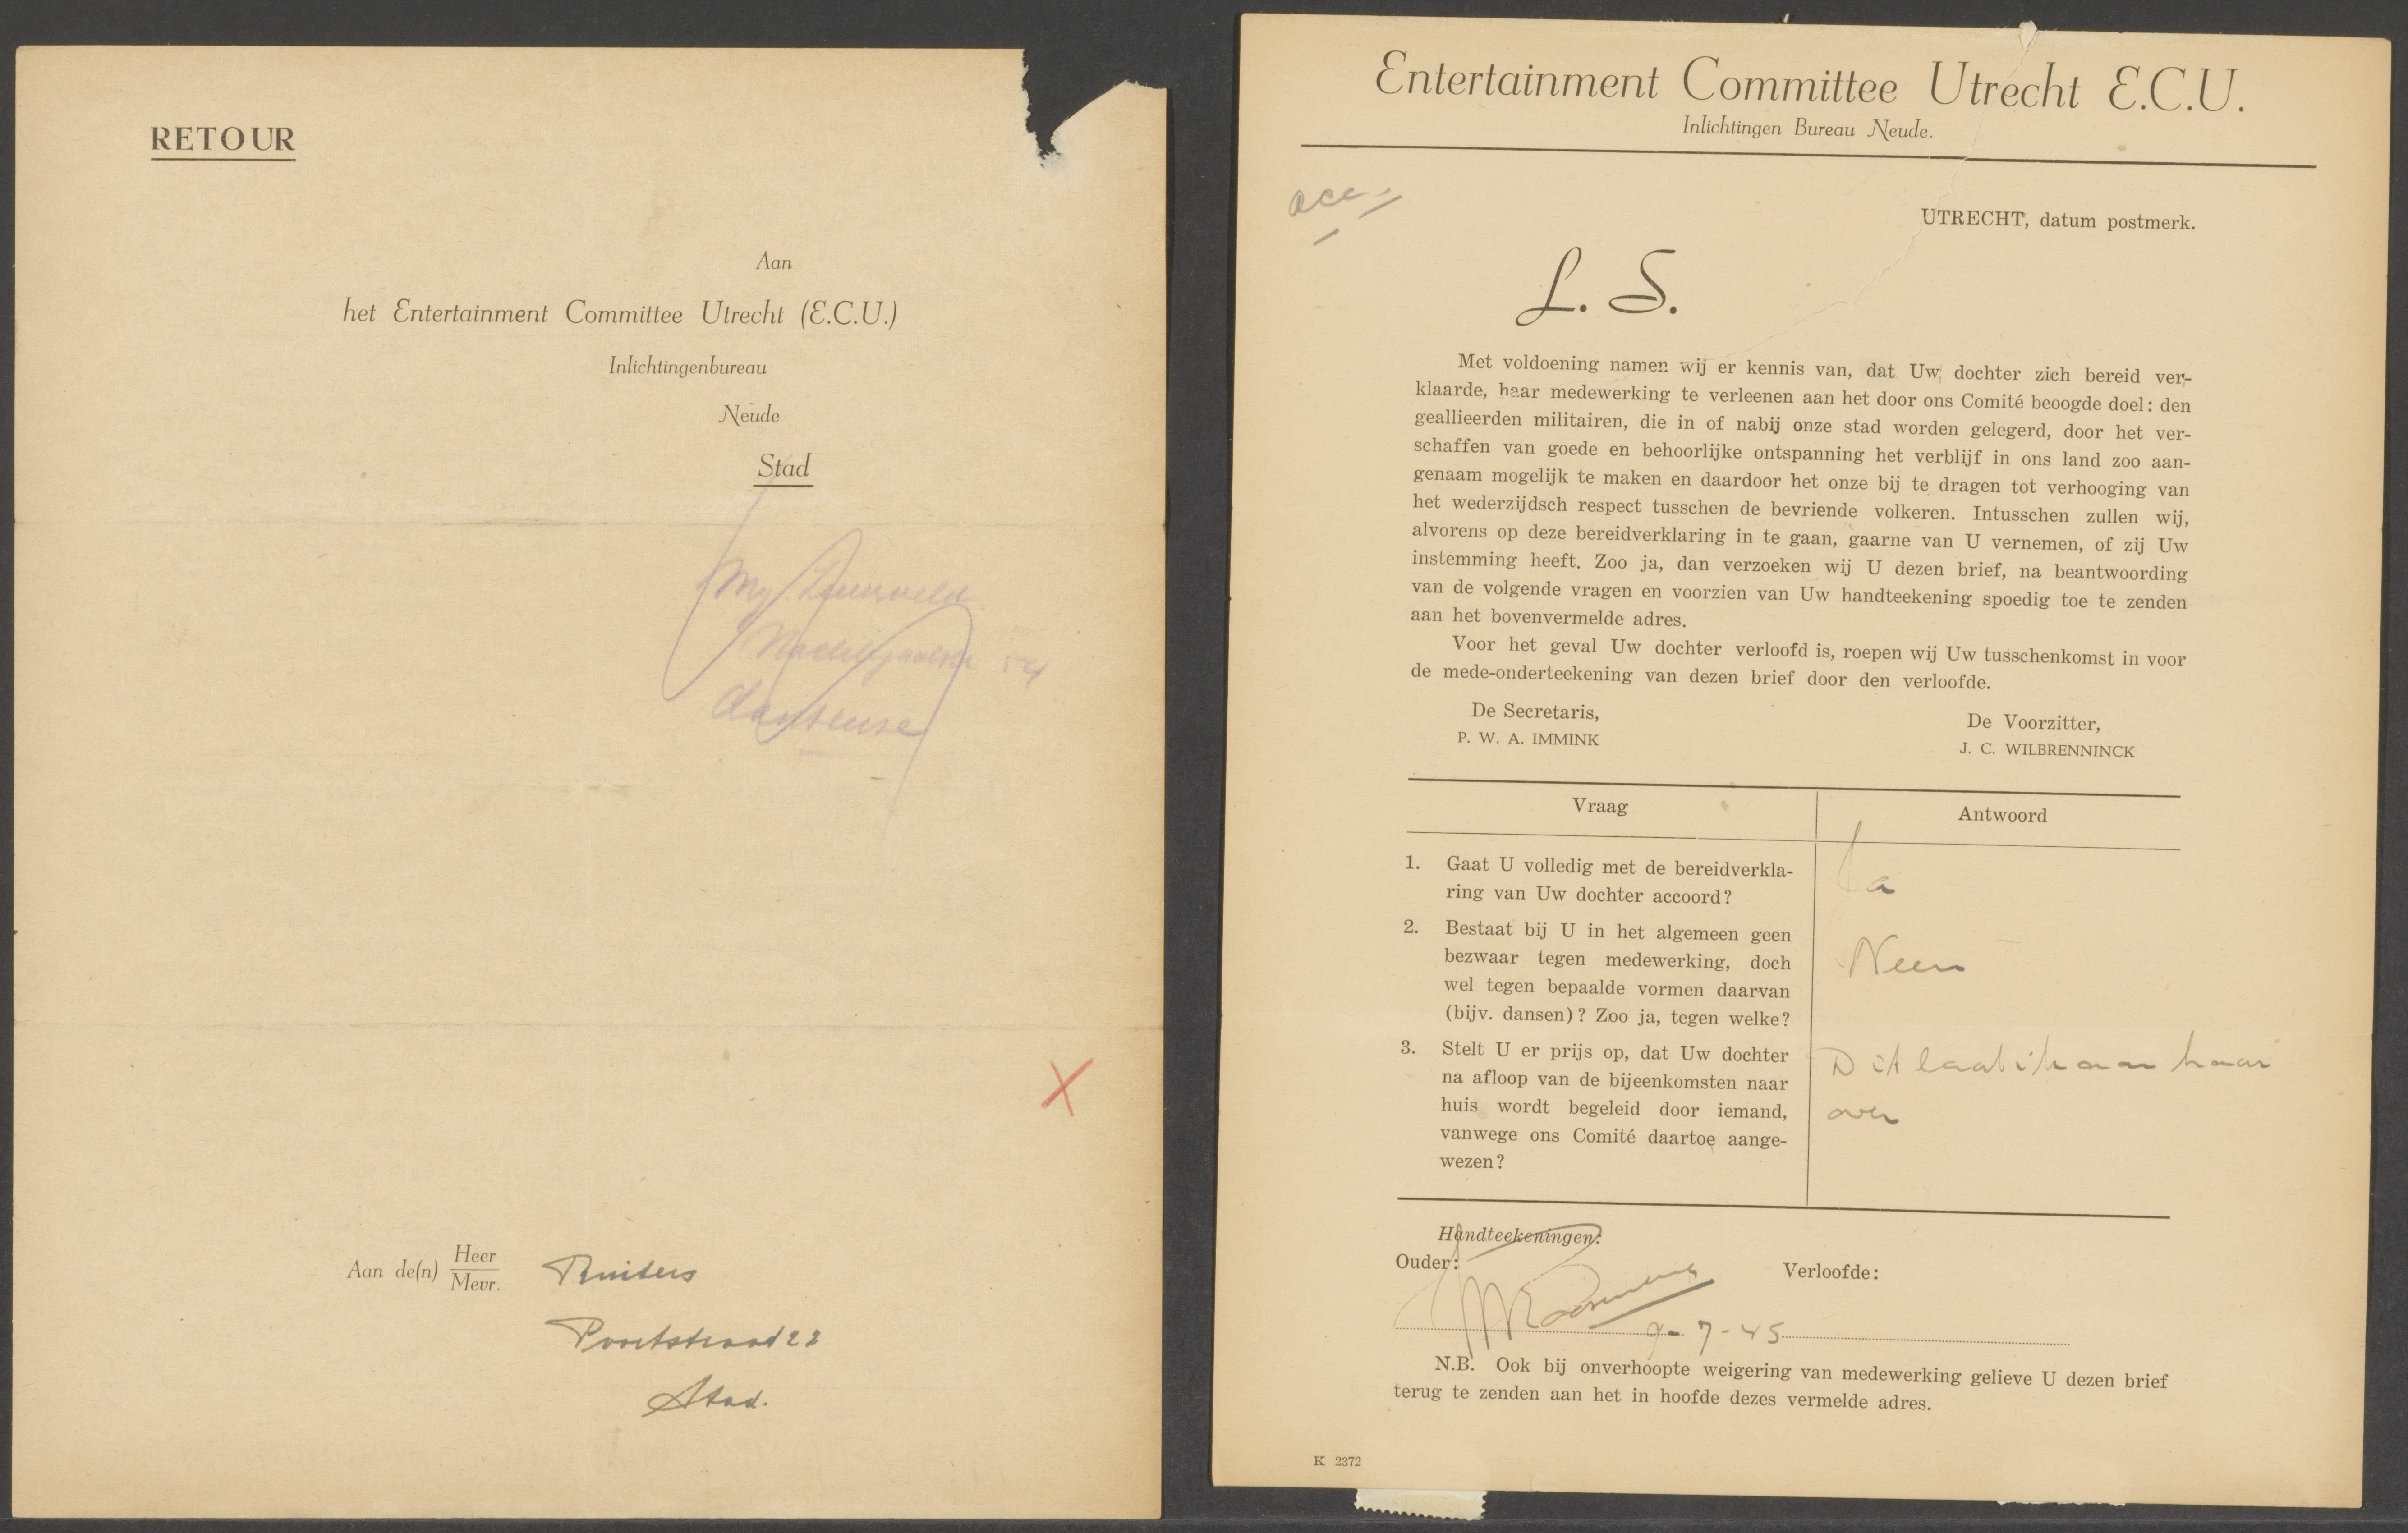 RETOUR
Aan
het Entertainment Committee Utrecht (E.C.U.)
Inlichtingenbureau
Neude
Stad
54
danseuse
X
Aan de(n) Heer
Mevr.
Ruiters
Poortstraat 22
Stad.
Entertainment Committee Utrecht E.C.U.
Inlichtingen Bureau Neude.
acc.
UTRECHT, datum postmerk.
L. S.
Met voldoening namen wij er kennis van, dat Uw dochter zich bereid ver-
klaarde, haar medewerking te verleenen aan het door ons Comité beoogde doel: den
geallieerden militairen, die in of nabij onze stad worden gelegerd, door het ver-
schaffen van goede en behoorlijke ontspanning het verblijf in ons land zoo aan-
genaam mogelijk te maken en daardoor het onze bij te dragen tot verhooging van
het wederzijdsch respect tusschen de bevriende volkeren. Intusschen zullen wij,
alvorens op deze bereidverklaring in te gaan, gaarne van U vernemen, of zij Uw
instemming heeft. Zoo ja, dan verzoeken wij U dezen brief, na beantwoording
van de volgende vragen en voorzien van Uw handteekening spoedig toe te zenden
aan het bovenvermelde adres.
Voor het geval Uw dochter verloofd is, roepen wij Uw tusschenkomst in voor
de mede-onderteekening van dezen brief door den verloofde.
De Secretaris,
P. W. A. IMMINK
De Voorzitter,
J. C. WILBRENNINCK
Vraag
Antwoord
1. Gaat U volledig met de bereidverkla-
ring van Uw dochter accoord?
Ja
2. Bestaat bij U in het algemeen geen
bezwaar tegen medewerking, doch
wel tegen bepaalde vormen daarvan
(bijv. dansen)? Zoo ja, tegen welke?
Neen
3. Stelt U er prijs op, dat Uw dochter
na afloop van de bijeenkomsten naar
huis wordt begeleid door iemand,
vanwege ons Comité daartoe aange-
wezen?
Dit laat ik aan haar
over
Handteekeningen:
Ouder:
Verloofde:
9-7-45
N.B. Ook bij onverhoopte weigering van medewerking gelieve U dezen brief
terug te zenden aan het in hoofde dezes vermelde adres.
K 2372